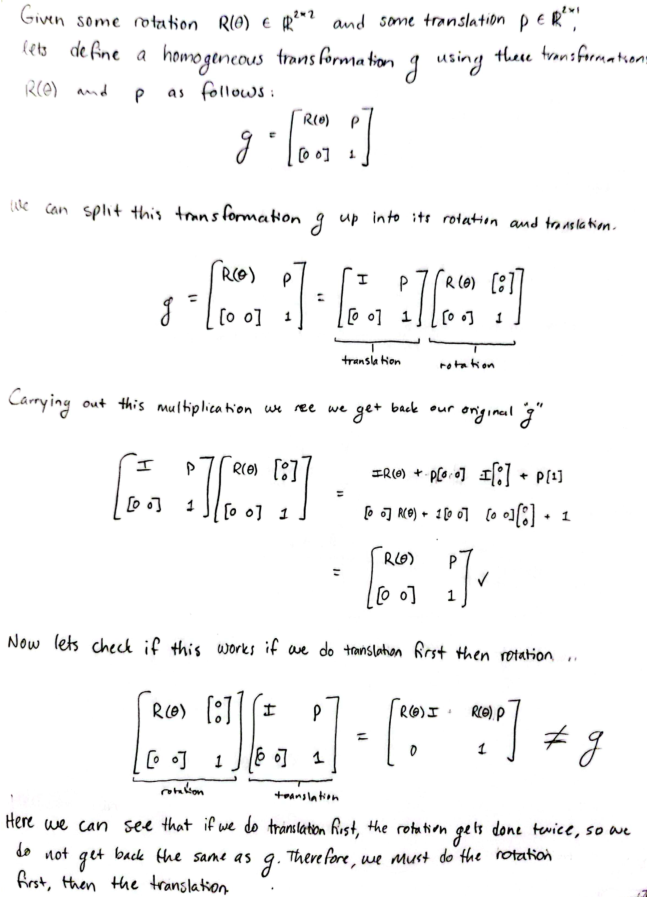 Given some rotation R(θ) ∈ ℝ²ˣ² and some translation p ∈ ℝ²ˣ¹,
lets define a homogeneous transformation g using these transformations
R(θ) and p as follows:
g = [ R(θ) p ; [0 0] 1 ]
We can split this transformation g up into its rotation and translation.
g = [ R(θ) p ; [0 0] 1 ] = [ I p ; [0 0] 1 ] [ R(θ) [0 ; 0] ; [0 0] 1 ]
translation rotation
Carrying out this multiplication we see we get back our original "g"
[ I p ; [0 0] 1 ] [ R(θ) [0 ; 0] ; [0 0] 1 ] = IR(θ) + p[0 0] I[0 ; 0] + p[1]
[0 0] R(θ) + 1[0 0] [0 0][0 ; 0] + 1
= [ R(θ) p ; [0 0] 1 ] ✓
Now lets check if this works if we do translation first then rotation ..
[ R(θ) [0 ; 0] ; [0 0] 1 ] [ I p ; [0 0] 1 ] = [ R(θ) I R(θ) p ; 0 1 ] ≠ g
rotation translation
Here we can see that if we do translation first, the rotation gets done twice, so we
do not get back the same as g. Therefore, we must do the rotation
first, then the translation